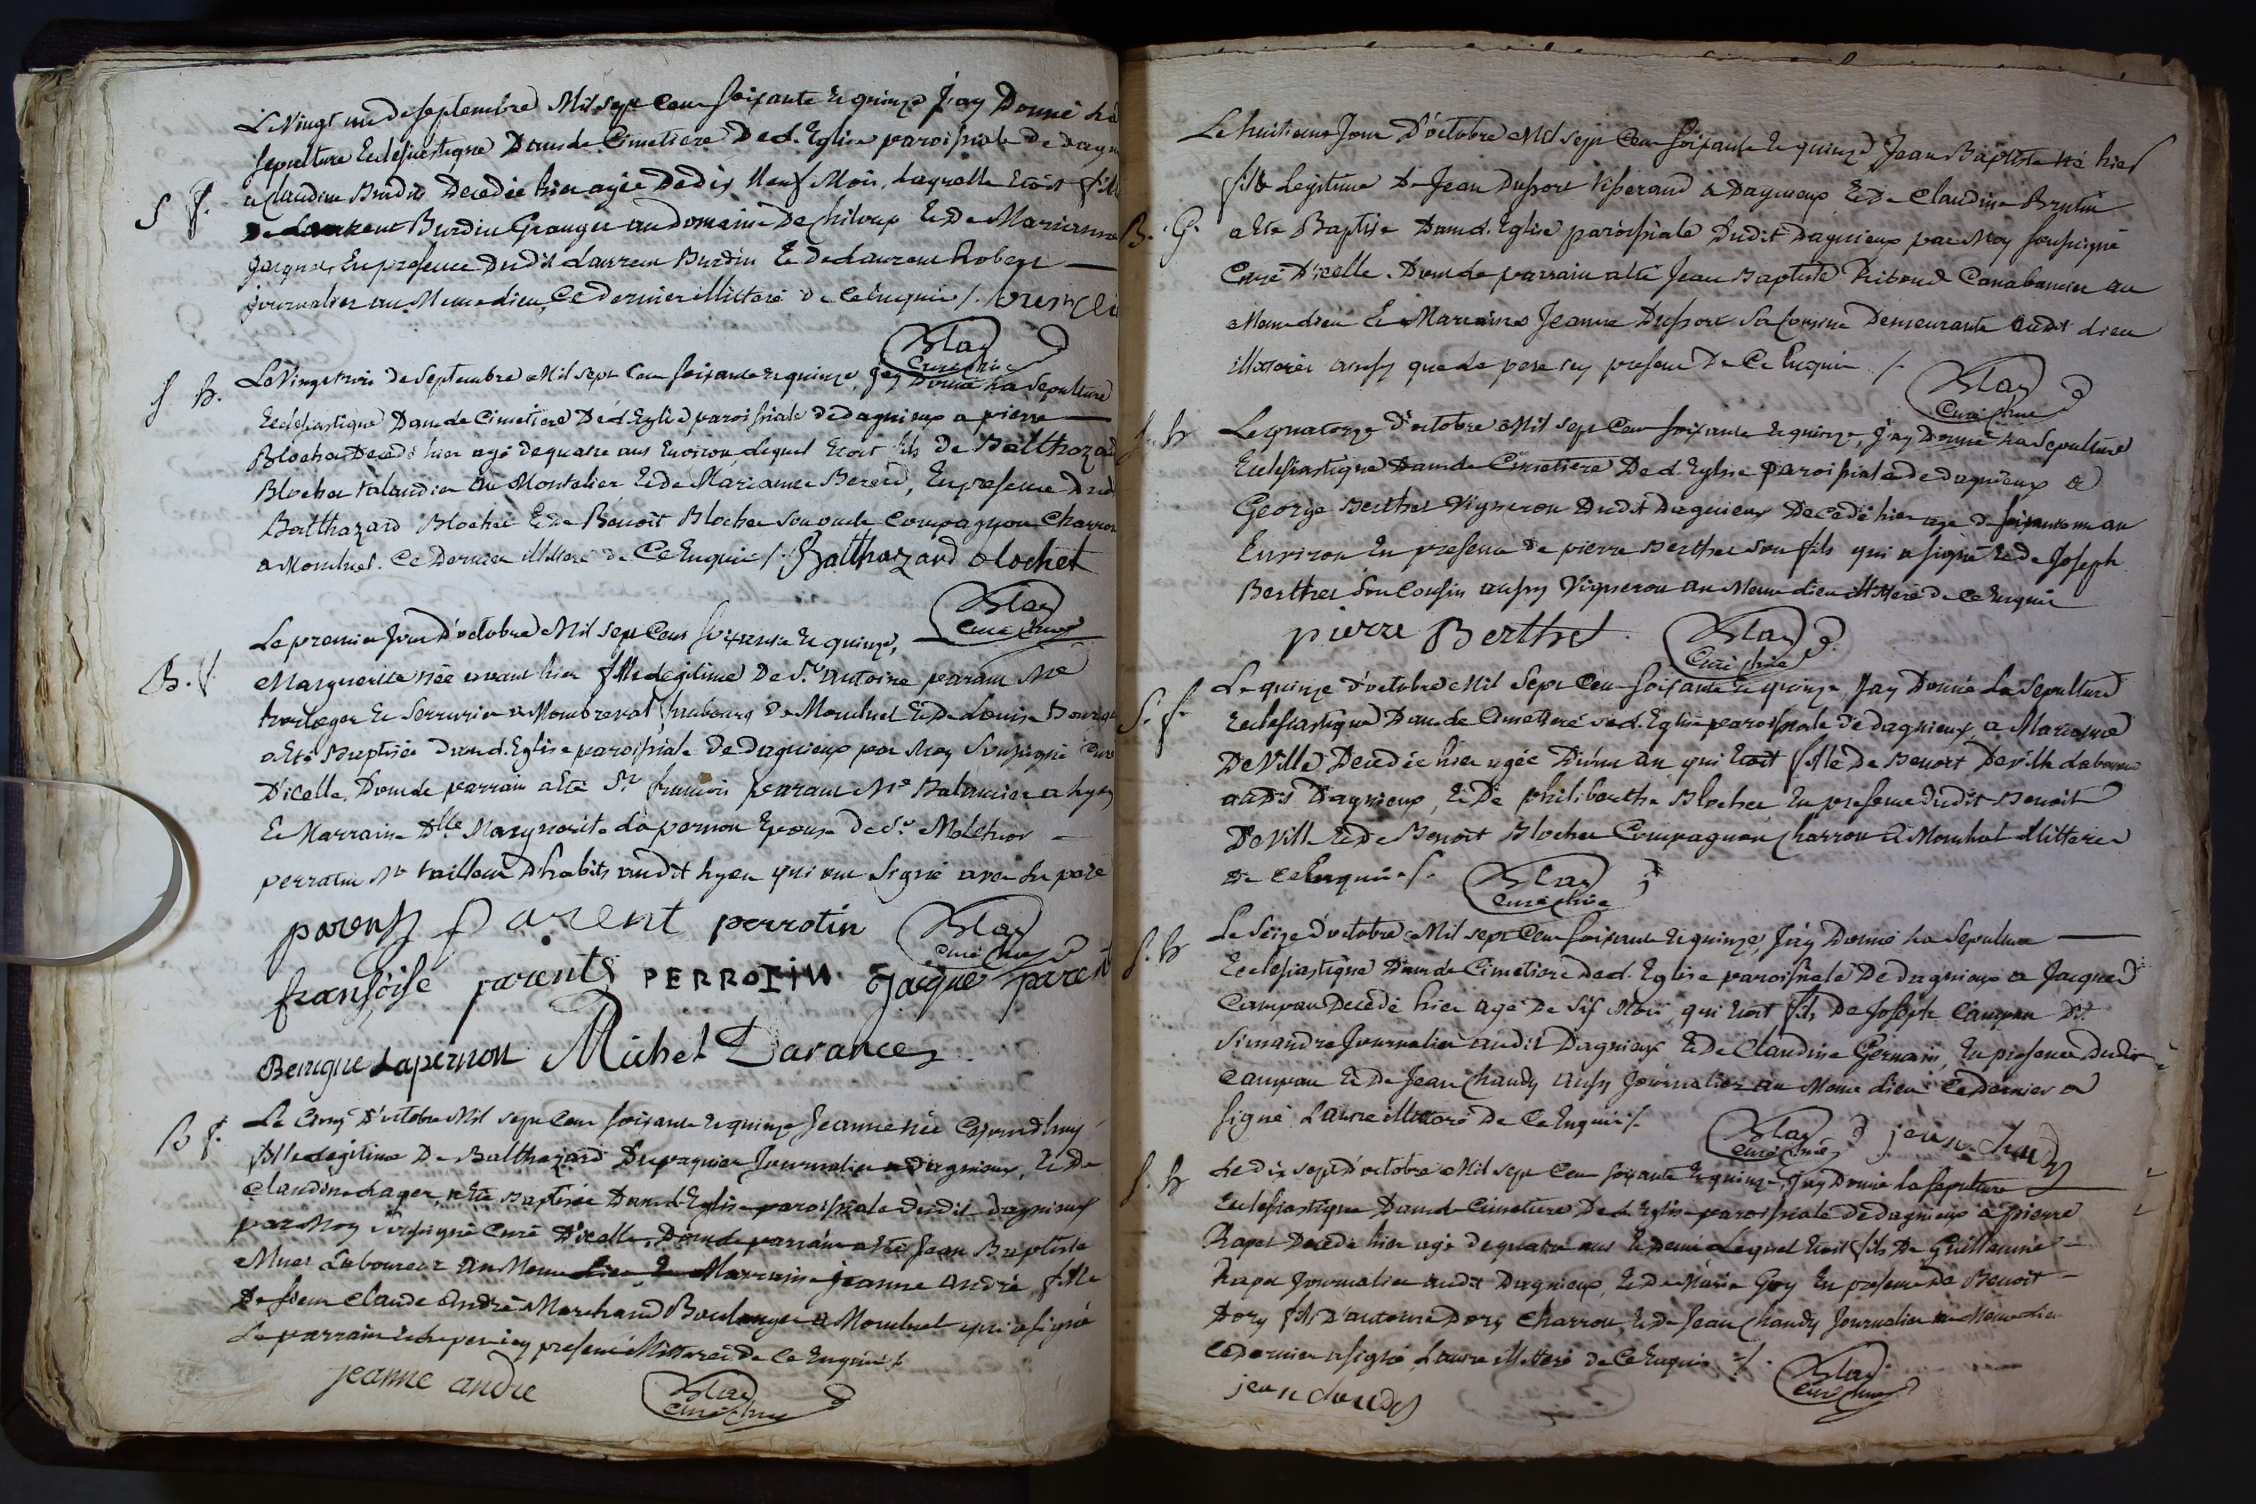 Le Vingt un de Septembre Mil sept Cent soixante et quinze J'ay Donné La
sepulture Eclesiastique Dans le Cimetiere De d. Eglise paroissiale de dagn
S f.
a Claudine Burdin Decedée hier agée De dix Neuf Mois, Laquelle Etoit fille
De Laurent Burdin Granger au Domaine De Chiloup et De Marianne
En presence Dudit Laurent Burdin et De Laurent Robert
journalier au Meme Lieu, Ce dernier illitteré de Ce Enquis /.
Blay
Curé
S h.
Le Vingt trois de Septembre Mil sept Cent soixante et quinze, J'ay Donné La Sepulture
Eclesiastique Dans le Cimetiere De d. Eglise paroissiale de Dagnieux a pierre
Blochet Decedé hier agé de quatre ans Environ, Lequel Etoit fils de Balthazar
Blochet talandier au Montelier et de Marianne Bererd, En presence Dud
Balthazard Blochet et De Benoit Blochet son oncle Compagnon Charron
a Montluel. Ce Dernier illitteré de Ce Enquis /. Balthazard Blochet
Blay
Curé
Le premier Jour D'octobre Mil sept Cent soixante et quinze,
B. f.
Marguerite née avant hier fille Legitime De Sr. antoine parant Me
horloger et Serrurier a Montreval faubourg de Montluel et De Louise
a Eté Baptisée Dans d. Eglise paroissiale De Dagnieux par Moy Soussigné Curé
D'icelle, Dont Le parrain a Eté Sr. francois parant Me Balancier a Lyon
Et Marraine Dlle Marguerite Lapernon Epouse de Sr.
perratin Me tailleur D'habits audit Lyon qui ont Signé avec Le pere
parent parent perrotin
Blay
Curé
fransoise parents PERROTIN Jacque paren
Benigne Lapernon Michel Darances
B f.
Le Cinq D'octobre Mil sept Cent soixante et quinze Jeanne née aujourdhuy
fille Legitime De Balthazard Dupaquier Journalier a Dagnieux, et De
Claudine Lager, a Eté Baptisée Dans d. Eglise paroissiale dudit Dagnieux
par Moy soussigné Curé D'icelle, Dont Le parrain a Eté Jean Baptiste
Laboureur au Meme Lieu, Et Marraine Jeanne André, fille
De sieur Claude André Marchand Boulanger a Montluel qui a signé
Le parrain et Le pere icy present illitterés de Ce Enquis /.
jeanne andre
Blay
Curé
Le huitieme Jour D'octobre Mil sept Cent soixante et quinze Jean Baptiste Né hier
fils Legitime De Jean Dufsort tisserand a Dagnieux et De Claudine Brutin
B. G.
a Eté Baptisé Dans d. Eglise paroissiale Dudit Dagnieux par Moy soussigné
Curé D'icelle. Dont Le parrain a Eté Jean Baptiste Riboud Canabassier au
Meme Lieu Et Marraine Jeanne Dufsort Sa Cousine Demeurante audit Lieu
illiterés aussy que Le pere icy present De Ce Enquis /.
Blay
Curé
S. h
Le quatorze D'octobre Mil sept Cent soixante et quinze, J'ay Donné La Sepulture
Eclesiastique Dans le Cimetiere De d. Eglise paroissiale de dagnieux a
George Berthet Vigneron Dudit Dagnieux Decedé hier agé de soixante un an
Environ En presence de pierre Berthet son fils qui a signé et De Joseph
Berthet son Cousin aussy Vigneron au Meme Lieu illitteré de Ce Enquis
pierre Berthet
Blay
Curé
S. f
Le quinze D'octobre Mil Sept Cent soixante et quinze J'ay Donné La Sepulture
Eclesiastique Dans le Cimetiere de d. Eglise paroissiale de dagnieux, a Marianne
De Ville Decedée hier agée D'un an qui Etoit fille De Benoit Deville Laboureur
audit Dagnieux, et De philiberthe Blochet En presence dudit Benoit
De Ville et De Benoit Blochet Compagnon Charron a Montluel illitterés
De Ce Enquis /.
Blay
Curé
S. h
Le Seize D'octobre Mil sept Cent soixante et quinze J'ay Donné La Sepulture
Eclesiastique Dans le Cimetiere De d. Eglise paroissiale De Dagnieux a Jacque
Campan Decedé hier Agé De Six Mois, qui Etoit fils De Joseph Campan Dt
Simandre Journalier audit Dagnieux et De Claudine Germain, En presence Dudit
Campan et De Jean Chandy aussy Journalier au Meme Lieu Ce Dernier a
signé L'autre illitteré De Ce Enquis /.
Blay
Curé
jean chandy
S. h
Le Dix sept D'octobre Mil sept Cent soixante et quinze, J'ay Donné la sepulture
Eclesiastique Dans le Cimetiere De d. Eglise paroissiale De Dagnieux a pierre
Rapet Decedé hier agé de quatre ans et Demi Lequel Etoit fils De Guillaume
Rapet Journalier audit Dagnieux, et De Marie Goy En presence De Benoit
Dory fils D'antoine Dory Charron, et De Jean Chandy Journalier au Meme Lieu
Ce Dernier a signé, L'autre illitteré De Ce Enquis /.
jean chandy
Blay
Curé